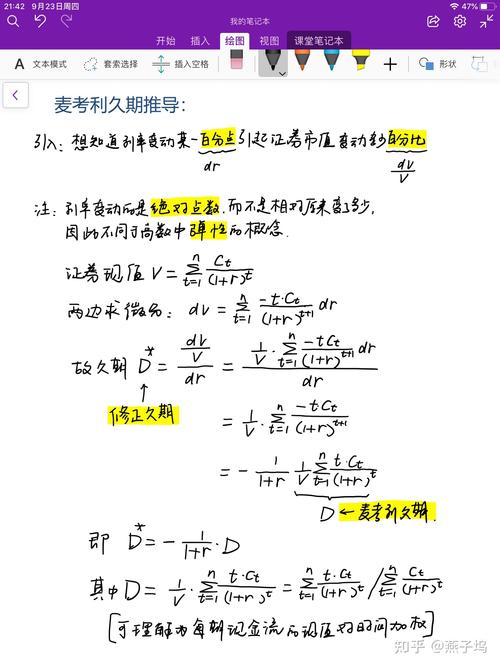 21:42 9月23日周四
47%
我的笔记本
开始 插入 绘图 视图 课堂笔记本
A 文本模式 套索选择 插入空格 形状
麦考利久期推导:
引入: 想知道利率变动某一百分点引起证券市值变动多少百分比
dr
dV/V
注: 利率变动的是绝对点数,而不是相对原来多少,
因此不同于高数中弹性的概念.
证券现值 V = Σ_{t=1}^{n} C_t/(1+r)^t
两边求微分: dV = Σ_{t=1}^{n} -t·C_t/(1+r)^{t+1} dr
故久期 D* = (dV/V)/dr = (1/V · Σ_{t=1}^{n} -tC_t/(1+r)^{t+1} dr)/dr
↑
修正久期
= 1/V · Σ_{t=1}^{n} -tC_t/(1+r)^{t+1}
= - 1/(1+r) 1/V Σ_{t=1}^{n} t·C_t/(1+r)^t
D ← 麦考利久期.
即 D* = - 1/(1+r) · D
其中 D = 1/V · Σ_{t=1}^{n} t·C_t/(1+r)^t = Σ_{t=1}^{n} t·C_t/(1+r)^t / Σ_{t=1}^{n} C_t/(1+r)^t
[可理解为每期现金流的现值对时间加权]
知乎 @燕子坞